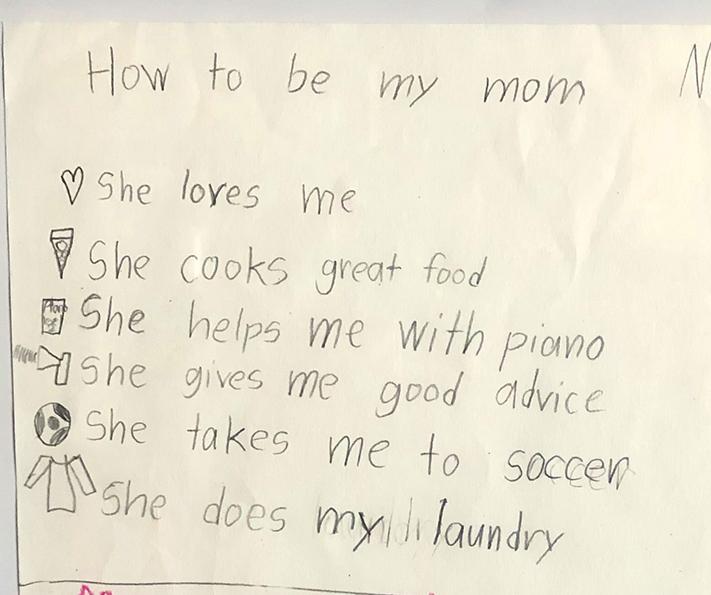 How to be my mom N
She loves me
She cooks great food
She helps me with piano
She gives me good advice
She takes me to soccer
She does my laundry